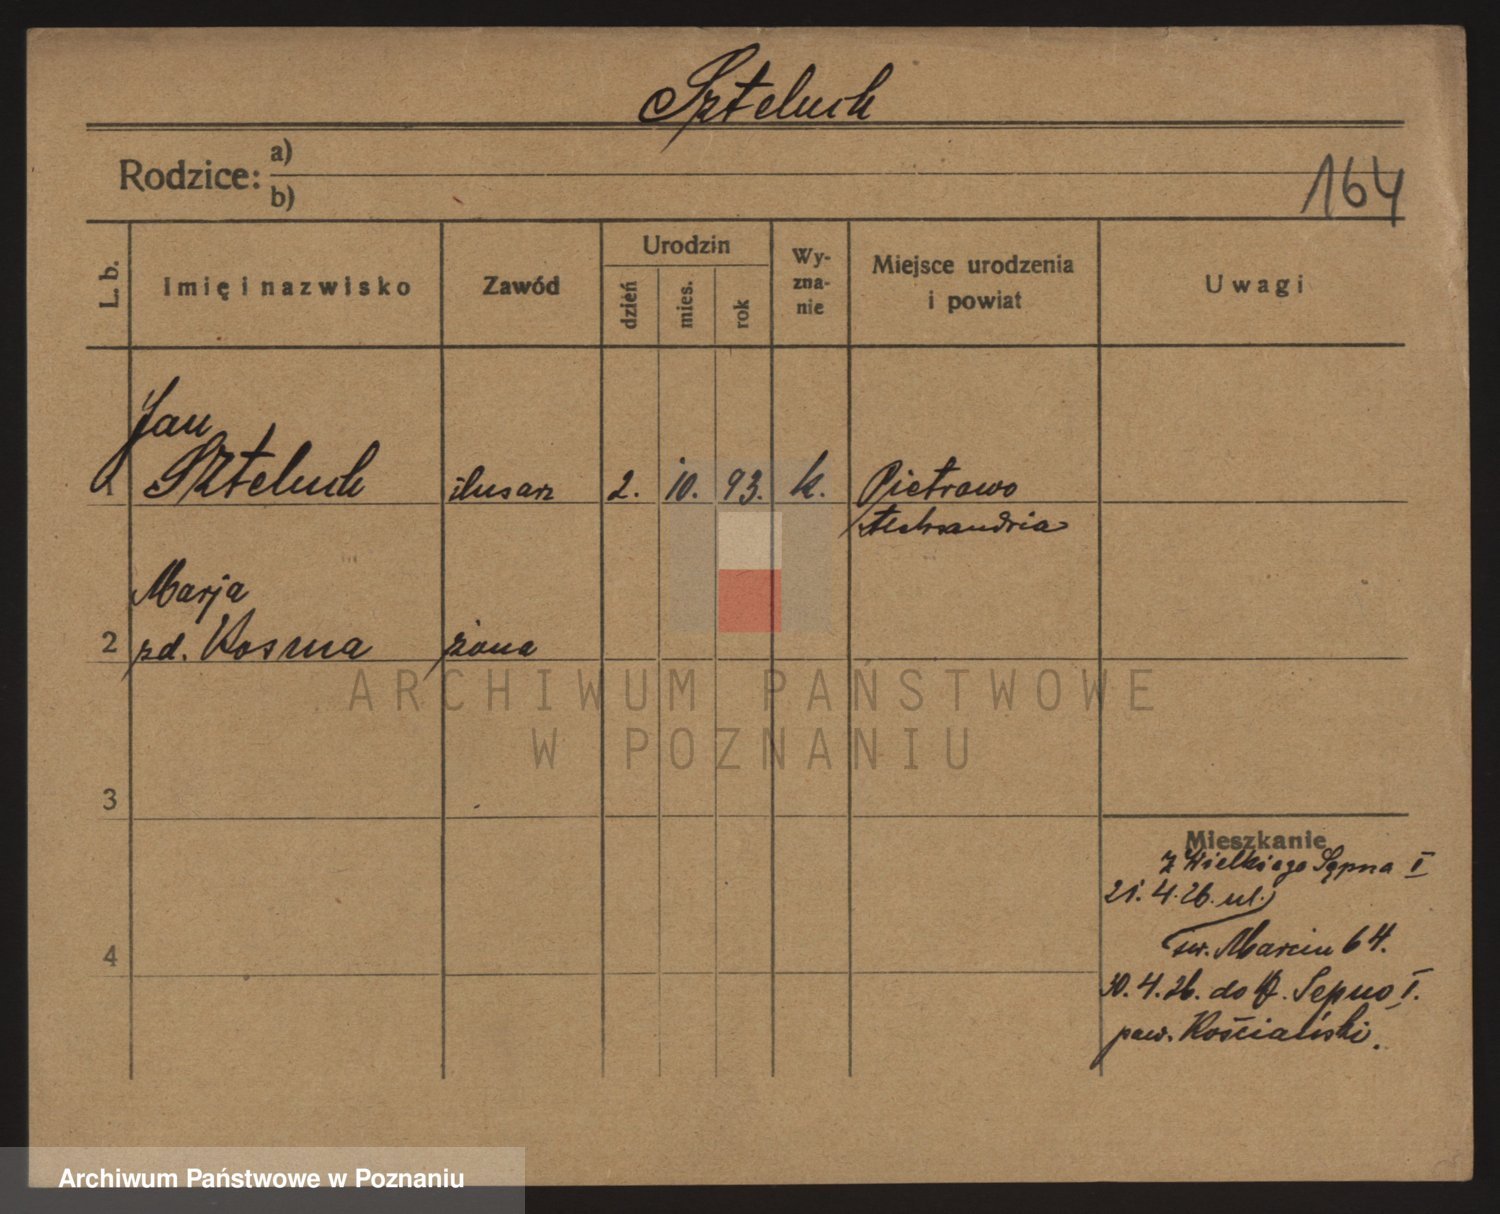 Szteluch
Rodzice: a)
b)
164
L. b.
Imię i nazwisko
Zawód
Urodzin
dzień
mies.
rok
Wy-
zna-
nie
Miejsce urodzenia
i powiat
Uwagi
Jan
1 Szteluch ślusarz 2. 10. 93. k. Pietrowo
Aleksandria
Marja
2 zd. Kosma żona
3
4
Mieszkanie
z Wielkiego Sępna I
21. 4. 26. ul.
św. Marcin 64.
30. 4. 26. do W. Sepno I.
pow. Kościański.
ARCHIWUM PAŃSTWOWE
W POZNANIU
Archiwum Państwowe w Poznaniu